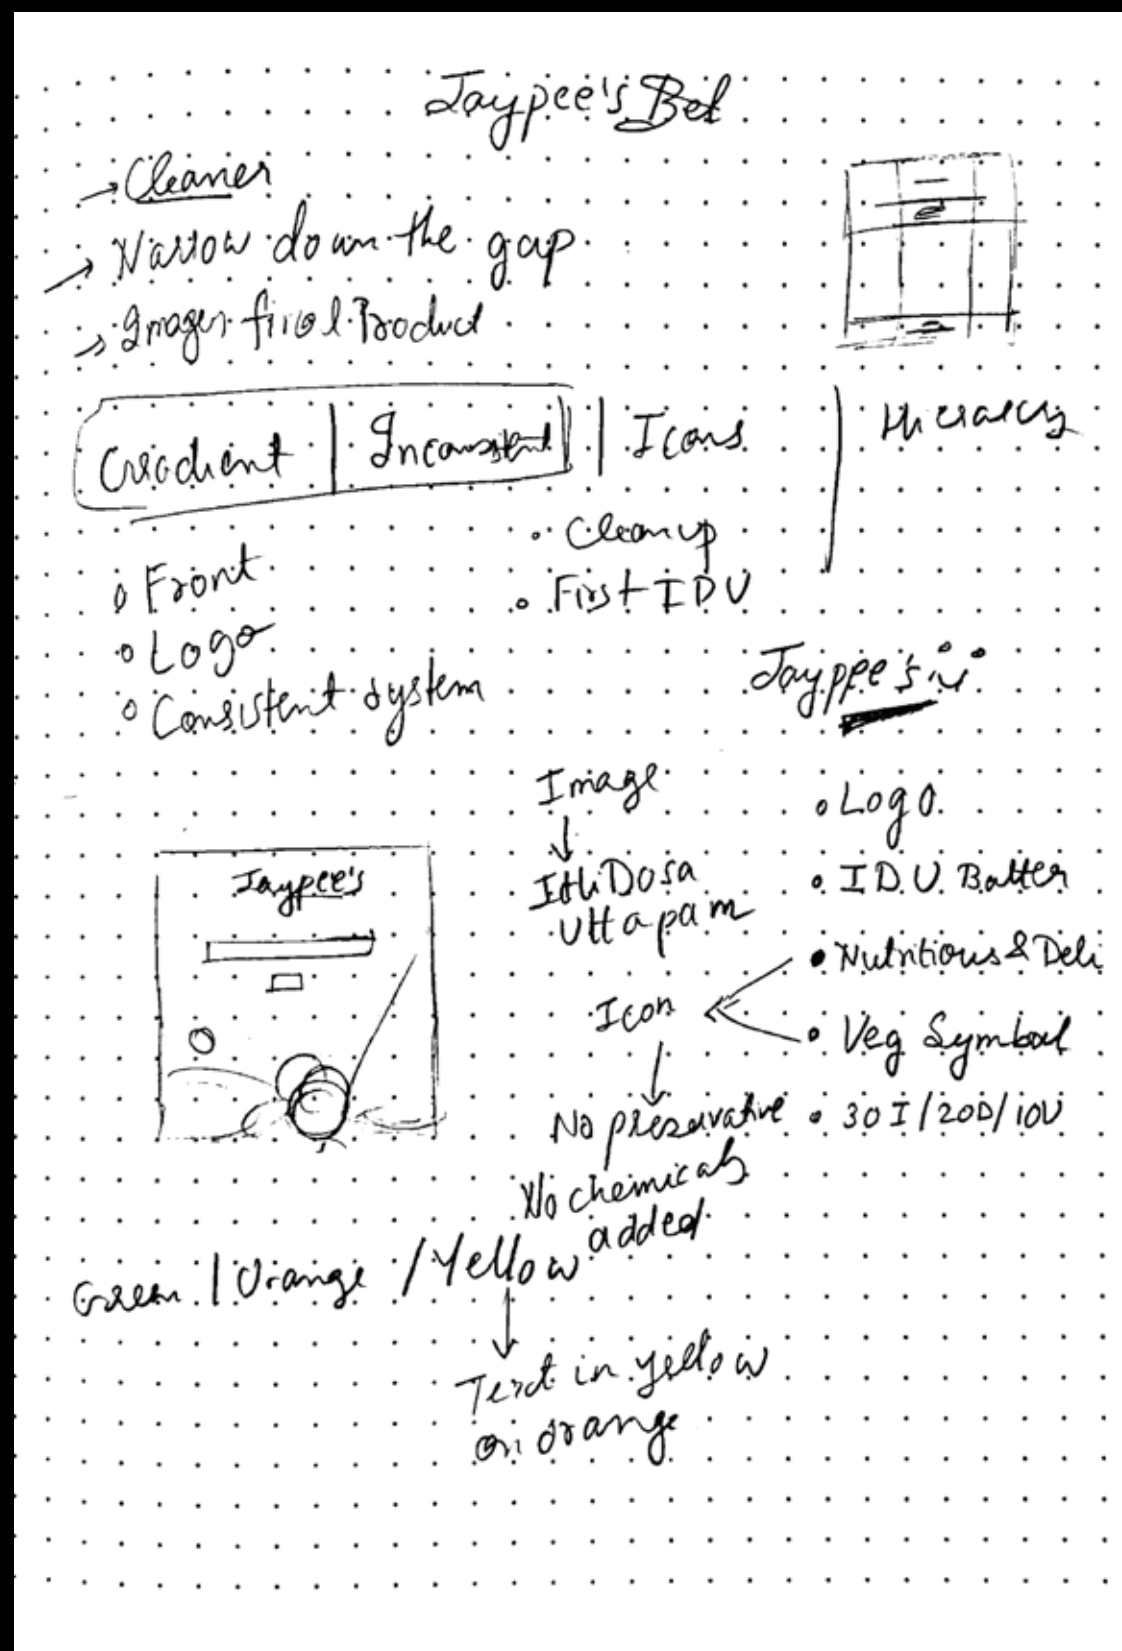 Jaypee's Bel
→ Cleaner
→ Narrow down the gap
→ Images final Product
Gradient | Inconsistent | Icons | Hierarcy
• Cleanup
• First IDU
• Front
• Logo
• Consistent system
Jaypee's
Image
↓
Idli Dosa
Uttapam
Icon
↓
No preservative
No chemicals
added
• Logo
• I.D.U. Batter
• Nutritious & Deli
• Veg Symbol
• 30I/20D/10U
Jaypee's
Green / Orange / Yellow
↓
Text in yellow
on orange